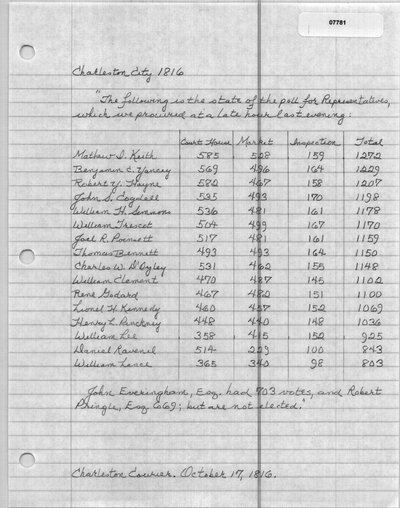 07781
Charleston City 1816
"The following is the state of the poll for Representatives,
which we procured at a late hour last evening:
Court House Market Inspection Total
Mathew I. Keith 585 528 159 1272
Benjamin C. Yancey 569 496 164 1229
Robert Y. Hayne 582 467 158 1207
John S. Cogdell 535 493 170 1198
William H. Simmons 536 481 161 1178
William Trescot 504 499 167 1170
Joel R. Poinsett 517 481 161 1159
Thomas Bennett 493 493 164 1150
Charles W. D'Oyley 531 462 155 1148
William Clement 470 487 145 1102
René Godard 467 482 151 1100
Lionel H. Kennedy 460 457 152 1069
Henry L. Pinckney 448 440 148 1036
William Lee 358 415 152 925
Daniel Ravenel 514 229 100 843
William Lance 365 340 98 803
John Everingham, Esq. had 703 votes, and Robert
Pringle, Esq. 669; but are not elected."
Charleston Courier. October 17, 1816.